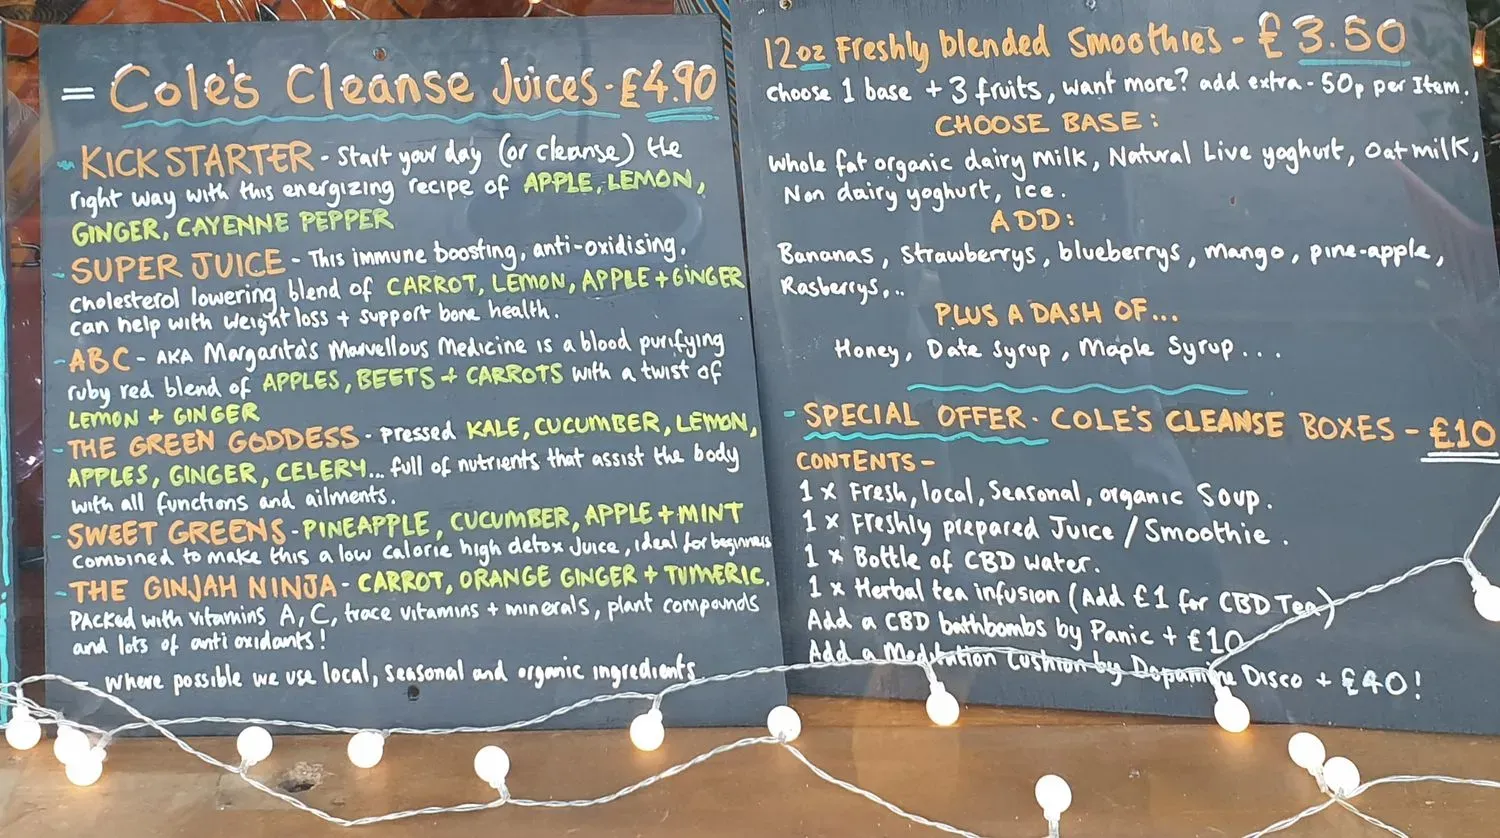 = Cole's Cleanse Juices - £4.90
- KICKSTARTER - Start your day (or cleanse) the
right way with this energizing recipe of APPLE, LEMON,
GINGER, CAYENNE PEPPER
- SUPER JUICE - This immune boosting, anti-oxidising,
cholesterol lowering blend of CARROT, LEMON, APPLE + GINGER
can help with weight loss + support bone health.
- ABC - AKA Margarita's Marvellous Medicine is a blood purifying
ruby red blend of APPLES, BEETS + CARROTS with a twist of
LEMON + GINGER
- THE GREEN GODDESS - pressed KALE, CUCUMBER, LEMON,
APPLES, GINGER, CELERY... full of nutrients that assist the body
with all functions and ailments.
- SWEET GREENS - PINEAPPLE, CUCUMBER, APPLE + MINT
combined to make this a low calorie high detox juice, ideal for beginners
- THE GINJAH NINJA - CARROT, ORANGE GINGER + TUMERIC.
Packed with vitamins A, C, trace vitamins + minerals, plant compounds
and lots of anti oxidants!
- where possible we use local, seasonal and organic ingredients
12oz Freshly blended Smoothies - £3.50
choose 1 base + 3 fruits, want more? add extra - 50p per Item.
CHOOSE BASE:
Whole fat organic dairy milk, Natural Live yoghurt, Oat milk,
Non dairy yoghurt, ice.
ADD:
Bananas, Strawberrys, blueberrys, mango, pine-apple,
Rasberrys,..
PLUS A DASH OF...
Honey, Date Syrup, Maple Syrup...
- SPECIAL OFFER - COLE'S CLEANSE BOXES - £10
CONTENTS -
1 x Fresh, local, Seasonal, organic Soup.
1 x Freshly prepared Juice / Smoothie.
1 x Bottle of CBD water.
1 x Herbal tea infusion (Add £1 for CBD Tea)
Add a CBD bathbombs by Panic + £10
Add a Meditation Cushion by Dopamine Disco + £40!